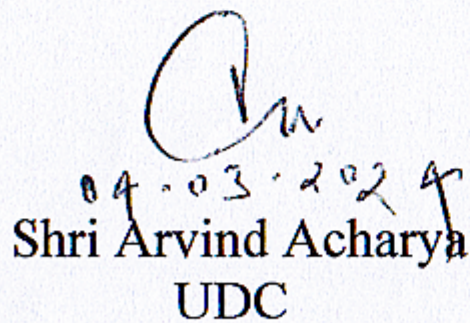 04.03.2024
Shri Arvind Acharya
UDC